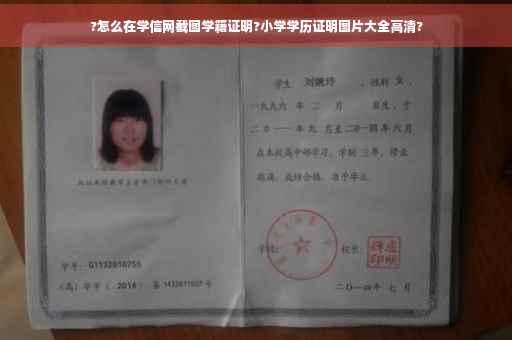 ?怎么在学信网截图学籍证明?小学学历证明图片大全高清?
学生 刘婉玲 、性别 女 、
一九九六 年 二 月 日生，于
二〇一一 年 九 月至二〇一四 年 六 月
在本校高中部学习，学制 三 年，修业
期满，成绩合格，准予毕业。
学校： 校长：
学号： G1132010755
（高）毕字（ 2014 ）第 1432011007 号
二〇一四年 七 月